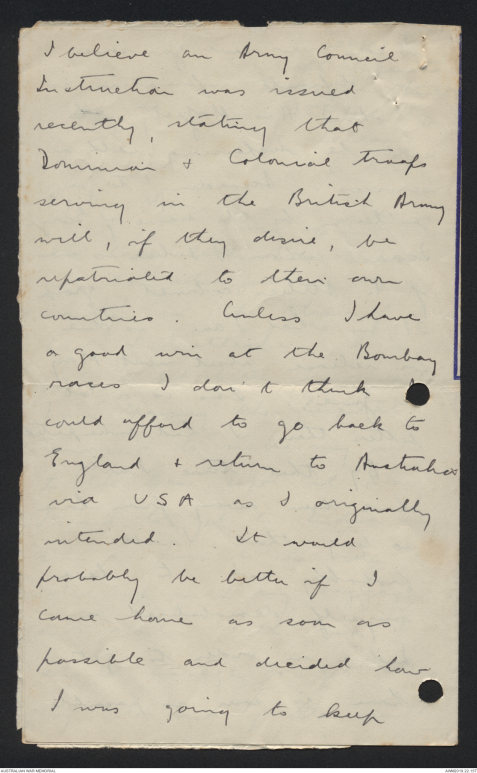 I believe an Army Council
Instruction was issued
recently, stating that
Dominion & Colonial troops
serving in the British Army
will, if they desire, be
repatriated to their own
countries. Unless I have
a good win at the Bombay
races I don't think I
could afford to go back to
England & return to Australia
via USA as I originally
intended. It would
probably be better if I
came home as soon as
possible and decided how
I was going to keep
AUSTRALIAN WAR MEMORIAL